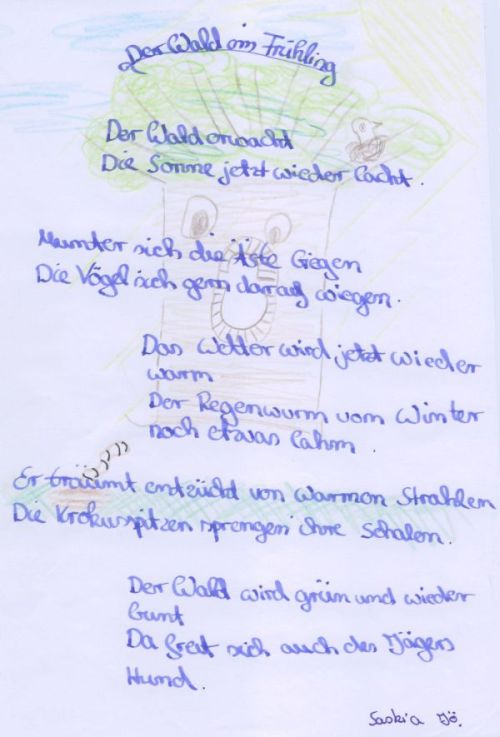 Der Wald im Frühling
Der Wald erwacht
Die Sonne jetzt wieder lacht.
Munter sich die Äste biegen
Die Vögel sich gern darauf wiegen.
Das Wetter wird jetzt wieder
warm
Der Regenwurm vom Winter
noch etwas lahm.
Er träumt entzückt von warmen Strahlen
Die Krokusspitzen sprengen ihre Schalen.
Der Wald wird grün und wieder
bunt
Da freut sich auch des Jägers
Hund.
Saskia Jö.